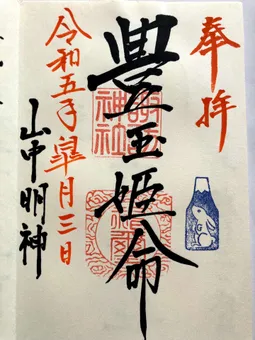 奉拝
豊玉姫命
令和五年皐月三日
山中明神